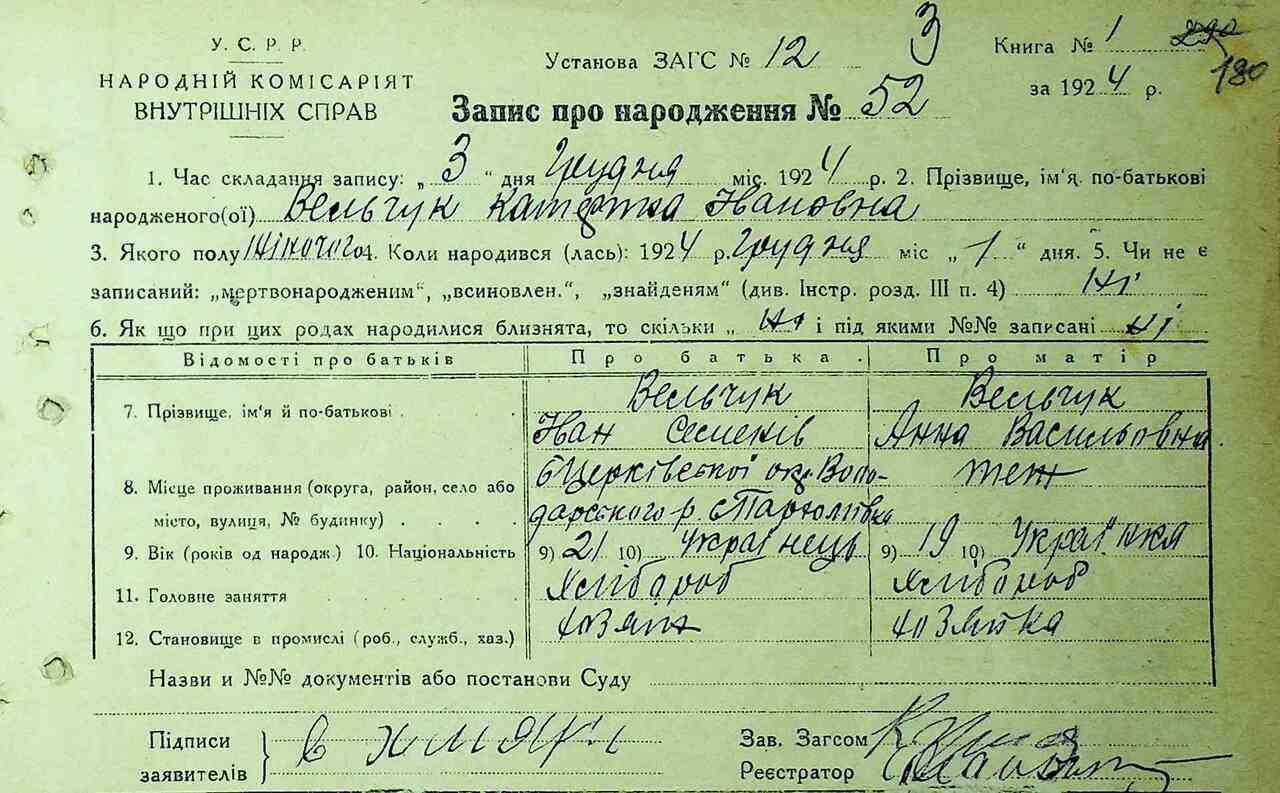 У. С. Р. Р.
НАРОДНІЙ КОМІСАРІЯТ
ВНУТРІШНІХ СПРАВ
Установа ЗАГС № 12 3
Книга № 1 290
180
за 1924 р.
Запис про народження № 52
1. Час складання запису: „ 3 “ дня Грудня міс. 1924 р. 2. Прізвище, ім'я, по-батькові
народженого(ої) Вельчук Ивановна
3. Якого полу жіночого 4. Коли народився (лась): 1924 р. Грудня міс „ 1 “ дня. 5. Чи не є
записаний: „мертвонародженим“, „всиновлен.“, „знайденям“ (див. Інстр. розд. III п. 4) ні
6. Як що при цих родах народилися близнята, то скільки „ ні і під якими №№ записані ні
Відомості про батьків Про батька. Про матір
7. Прізвище, ім'я й по-батькові Вельчук Вельчук
Иван Анна Васильовна
8. Місце проживання (округа, район, село або місто, вулиця, № будинку) бЦерківської окр. Воло-
дарського р. с теж
9. Вік (років од народж.) 10. Національність 9) 21 10) Українець 9) 19 10) Українка
11. Головне заняття Хлібороб Хлібороб
12. Становище в промислі (роб., служб., хаз.) хозяїн хозяйка
Назви и №№ документів або постанови Суду
Підписи
заявителів
Зав. Загсом
Реєстратор